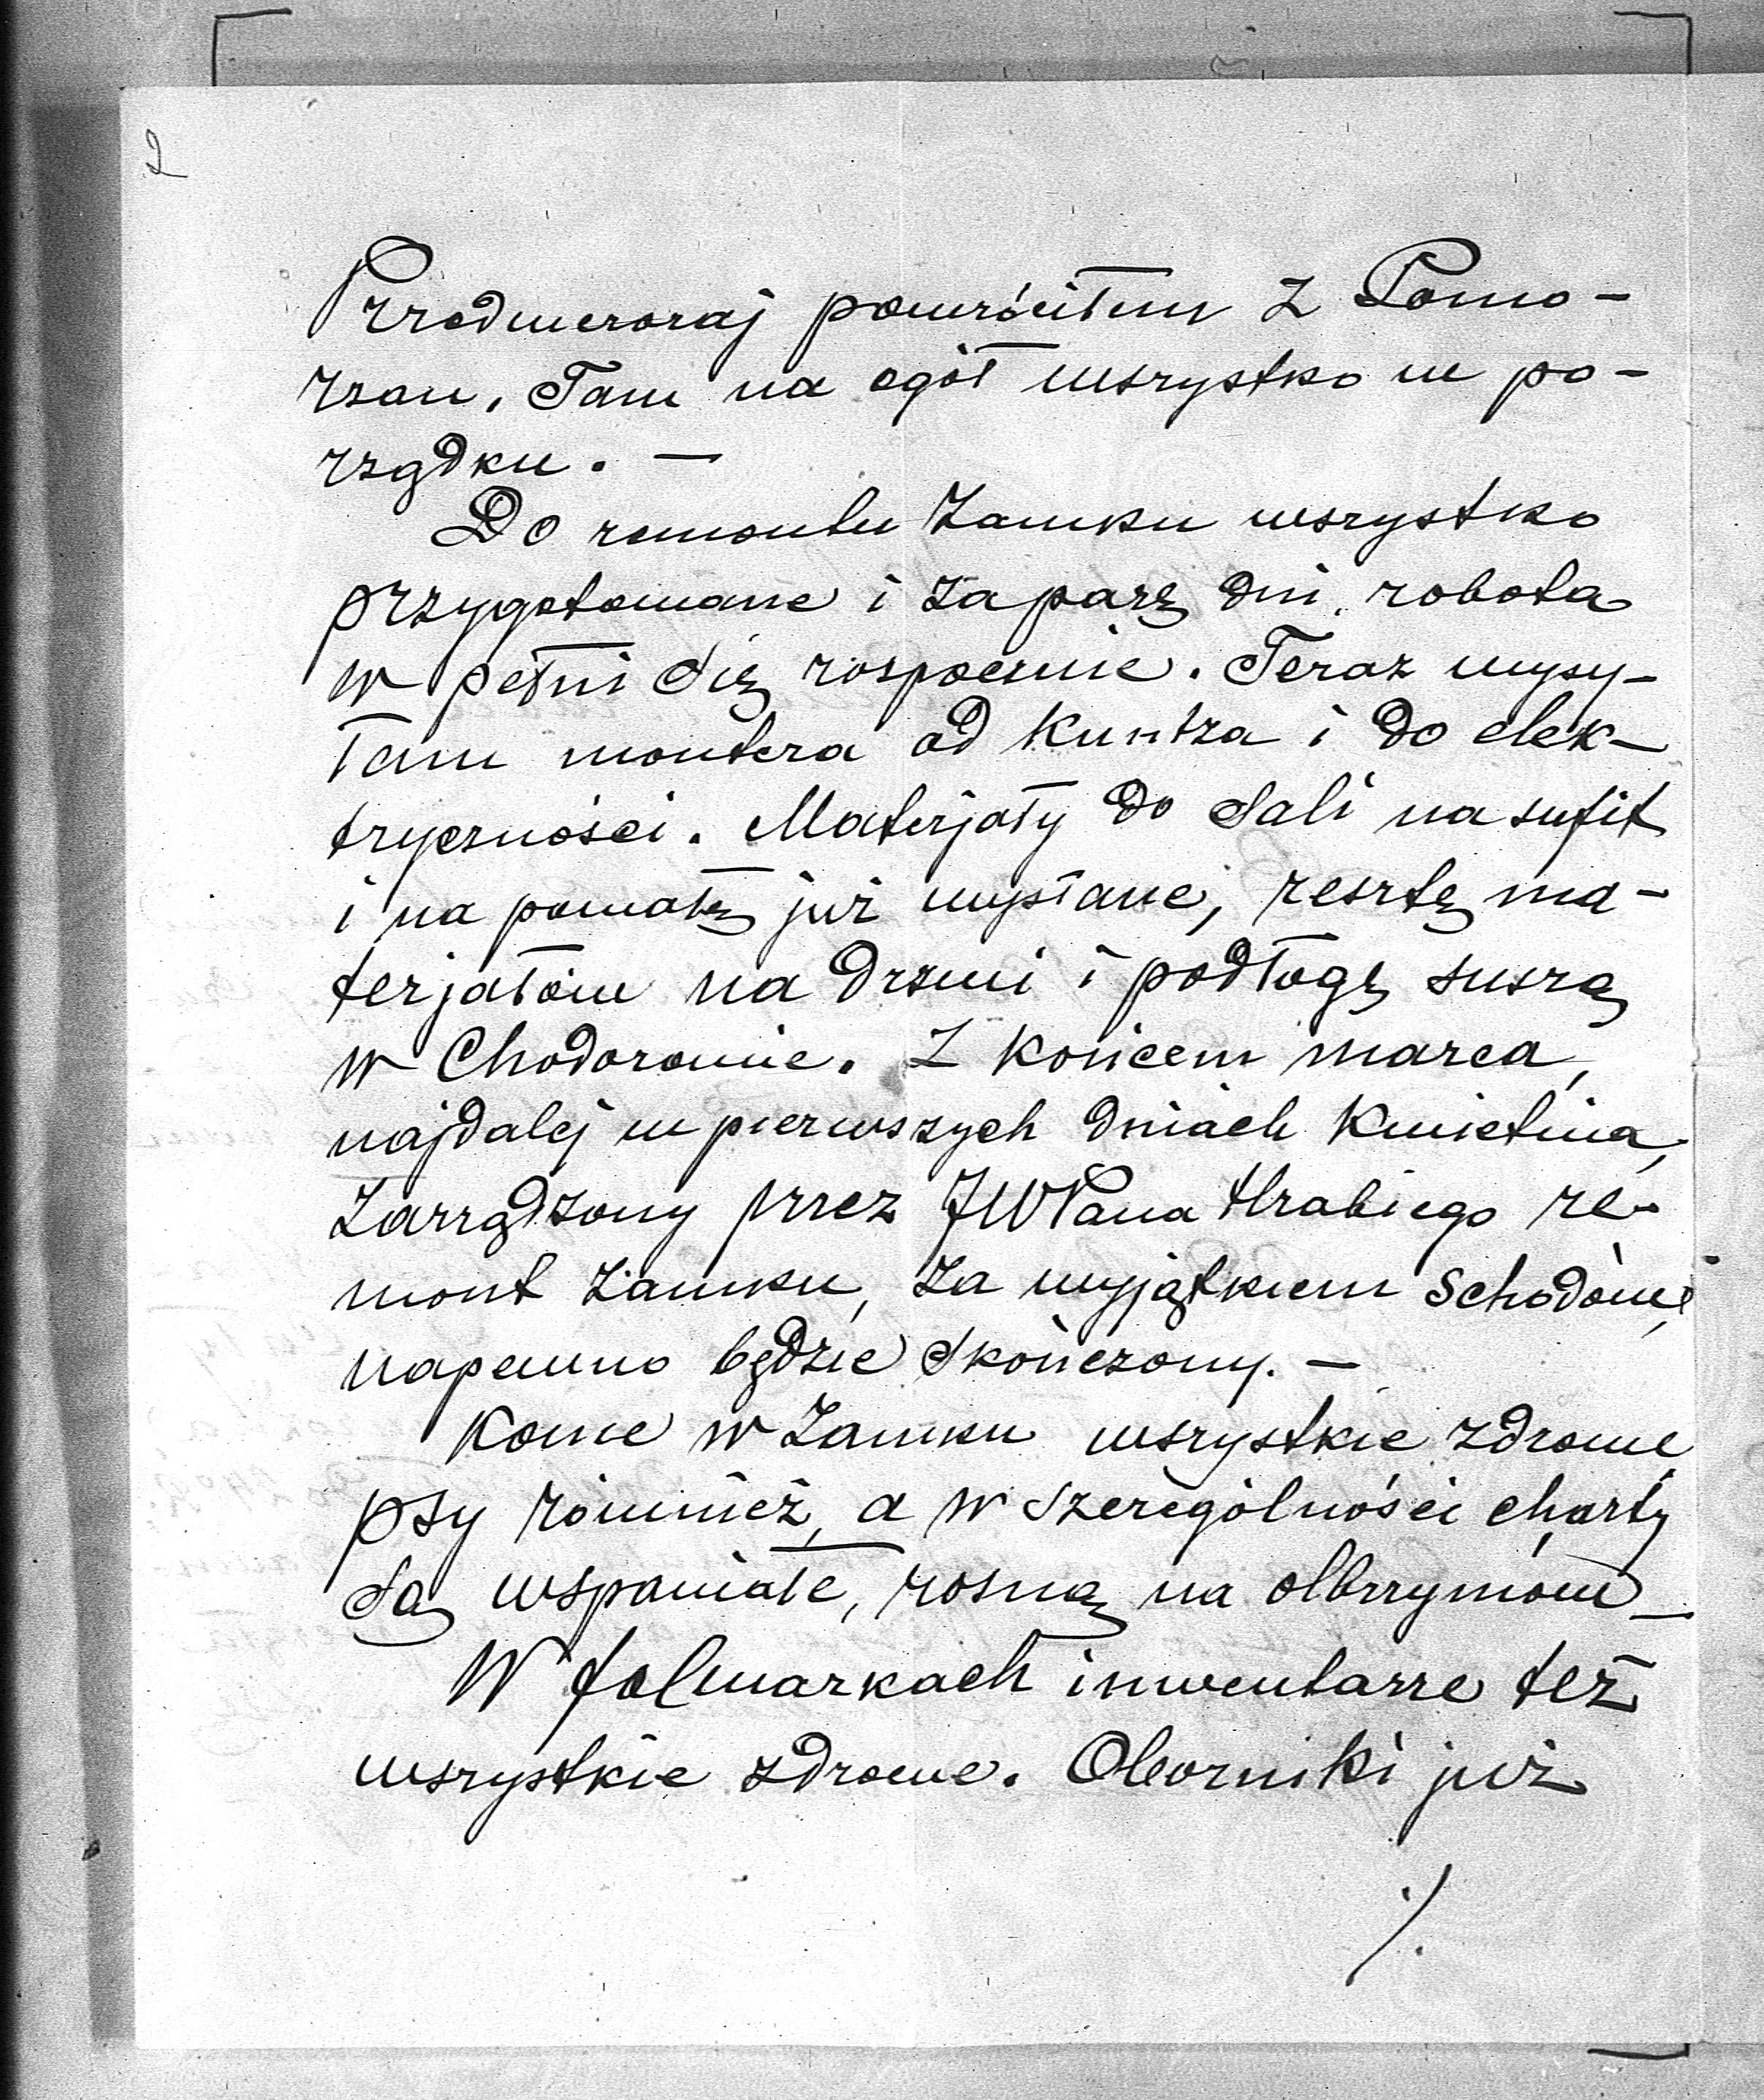 2
Przedwczoraj powróciłem z Pomo-
rzan. Tam na ogół wszystko w po-
rządku. —
Do remontu Zamku wszystko
przygotowane i za parę dni robota
w pełni się rospocznie. Teraz wysy-
łam montera od Kuntza i do elek-
tryczności. Materjały do sali na sufit
i na powałę już wysłane, resztę ma-
terjałów na drzwi i podłogę suszą
w Chodorowie. Z końcem marca,
najdalej w pierwszych dniach kwietnia,
zarządzony przez JWPana Hrabiego re-
mont zamku, za wyjątkiem schodów,
napewno będzie skończony. —
Konie w Zamku wszystkie zdrowe,
psy również, a w szczególności charty
są wspaniałe, rosną na olbrzymów —
W folwarkach inwentarze też
wszystkie zdrowe. Oborniki już
./.